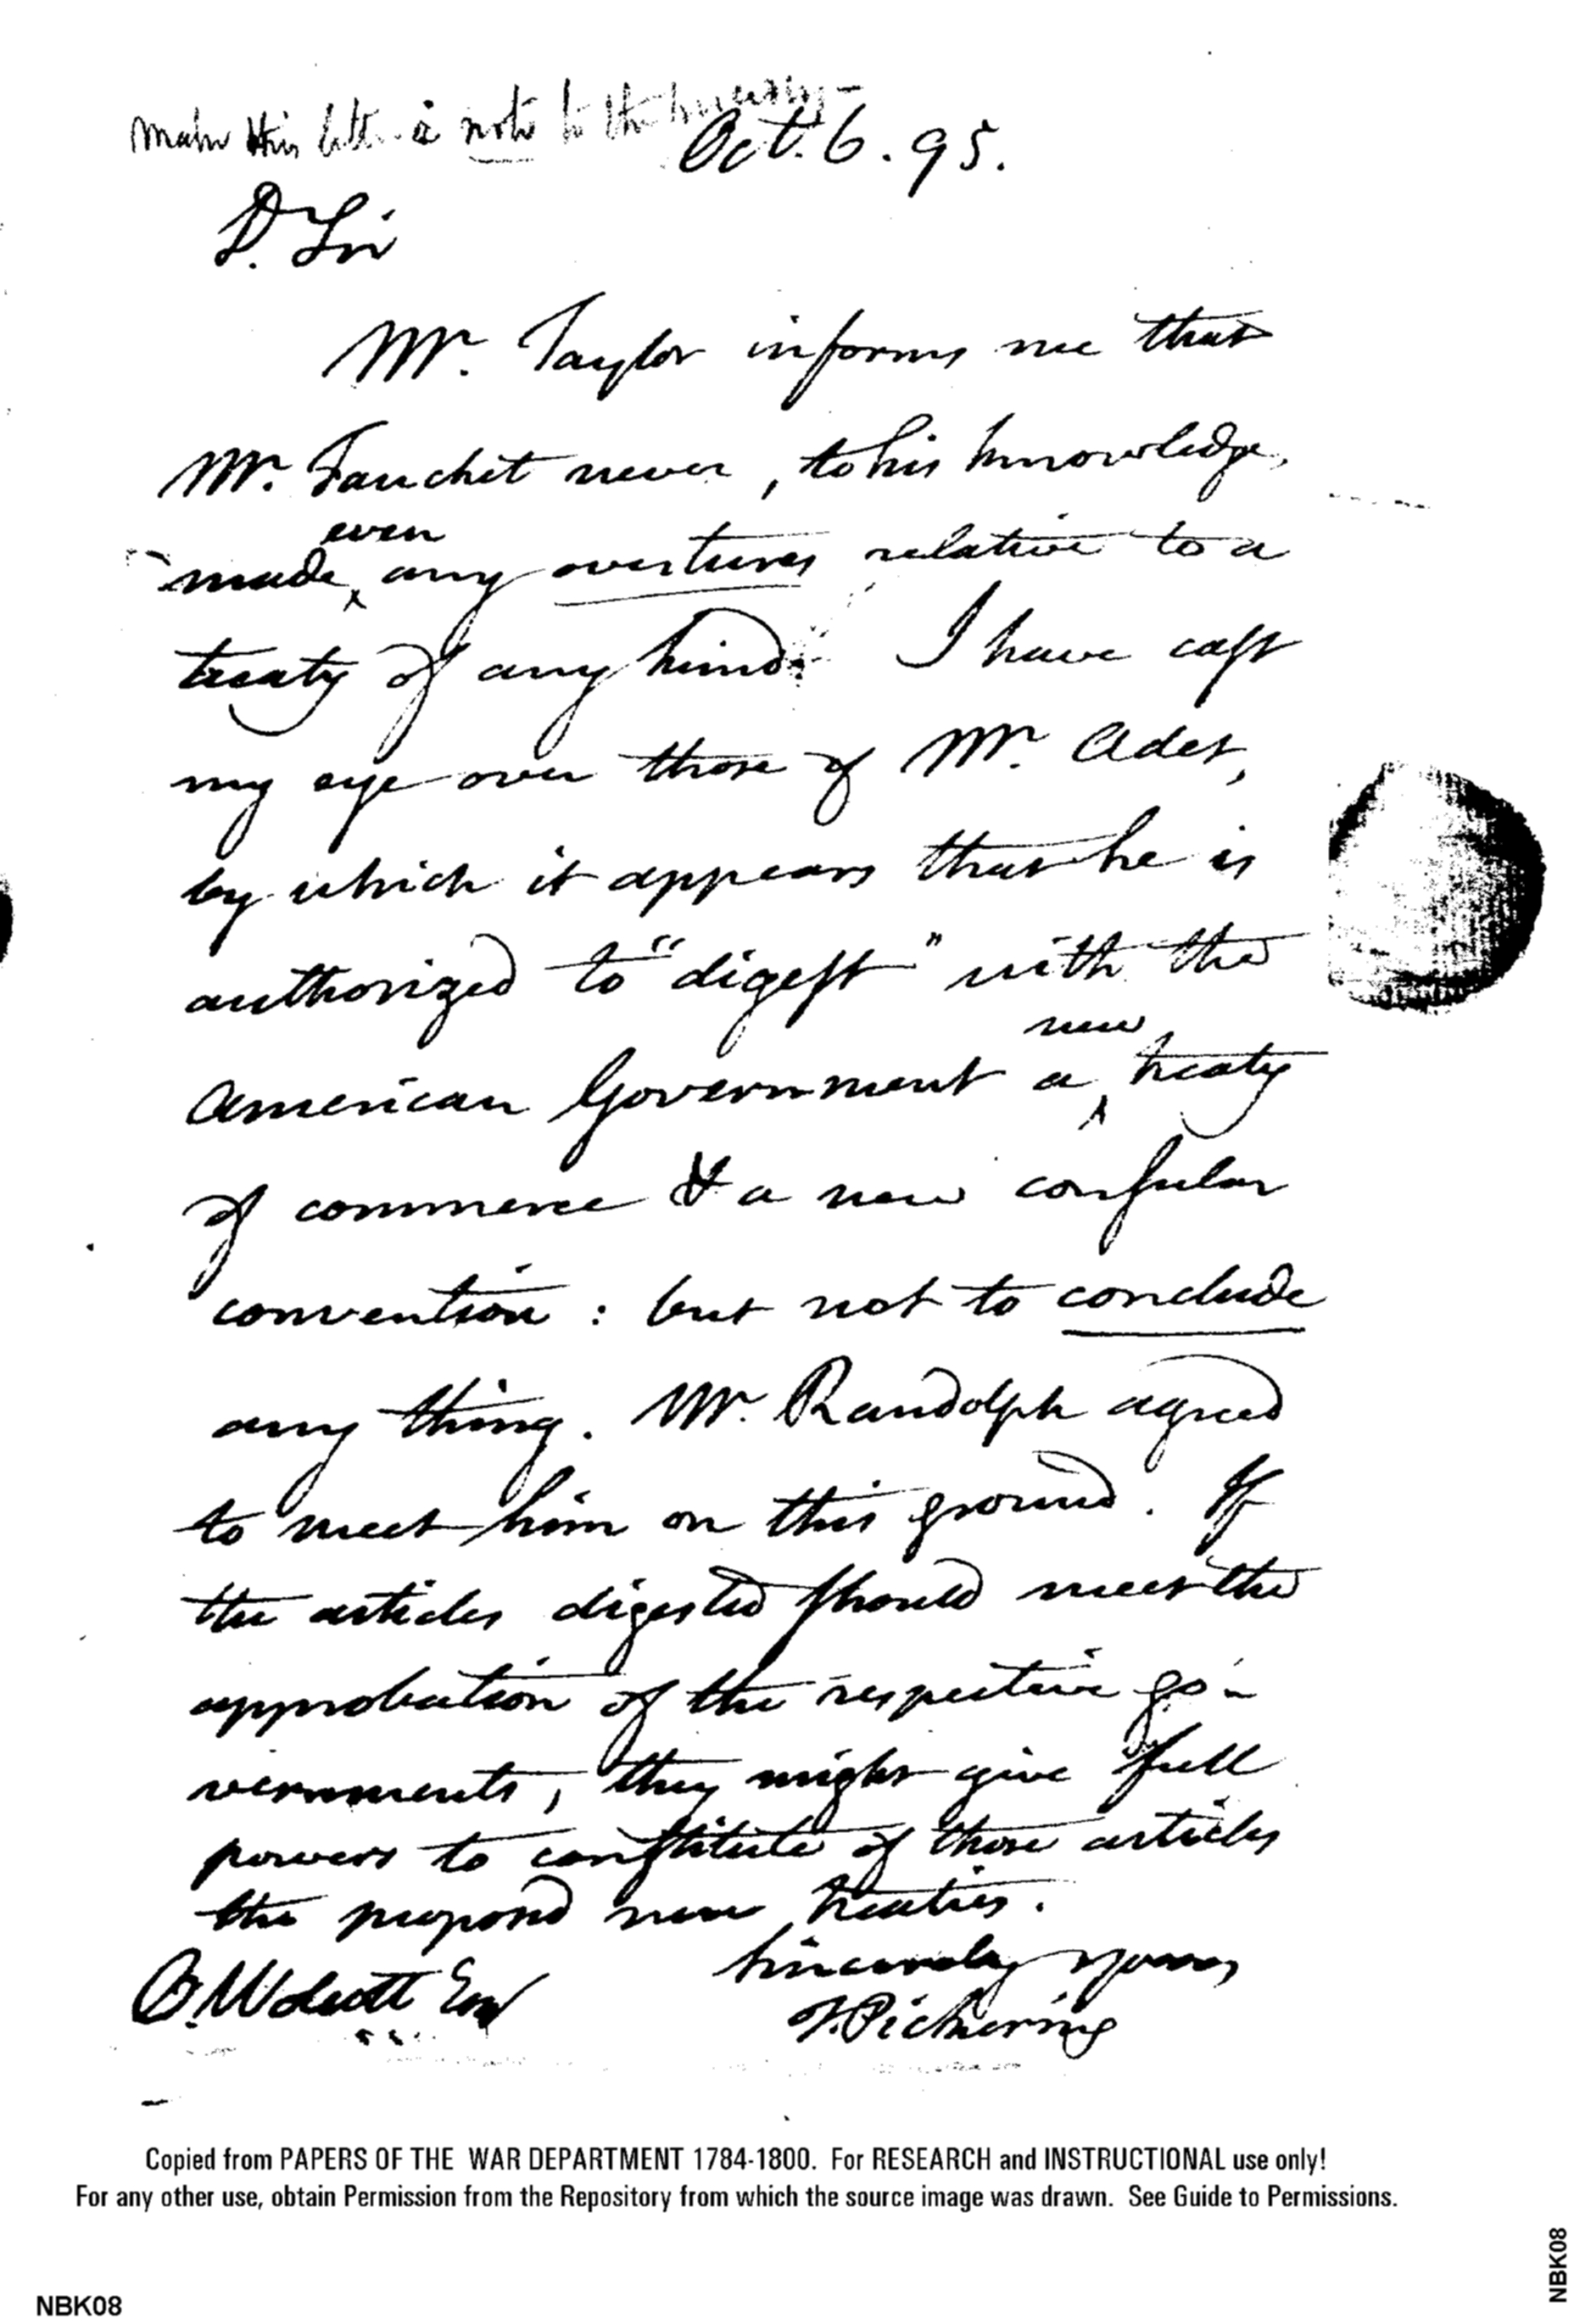 Make this letter a note to the
Oct. 6. 95.
D. Sir
Mr. Taylor informs me that
Mr. Fauchet never, to his knowledge,
even
made any overtures relative to a
treaty of any kind. I have cast
my eye over those of Mr. Adet,
by which it appears that he is
authorized to "digest" with the
new
American Government a treaty
of commerce & a new consular
convention: but not to conclude
any thing. Mr. Randolph agreed
to meet him on this ground. If
the articles digested should meet the
approbation of the respective go-
vernments, they might give full
powers to constitute of those articles
the proposed new treaties.
Sincerely yours,
O. Wolcott Esq
T. Pickering
Copied from PAPERS OF THE WAR DEPARTMENT 1784-1800. For RESEARCH and INSTRUCTIONAL use only!
For any other use, obtain Permission from the Repository from which the source image was drawn. See Guide to Permissions.
NBK08
NBK08